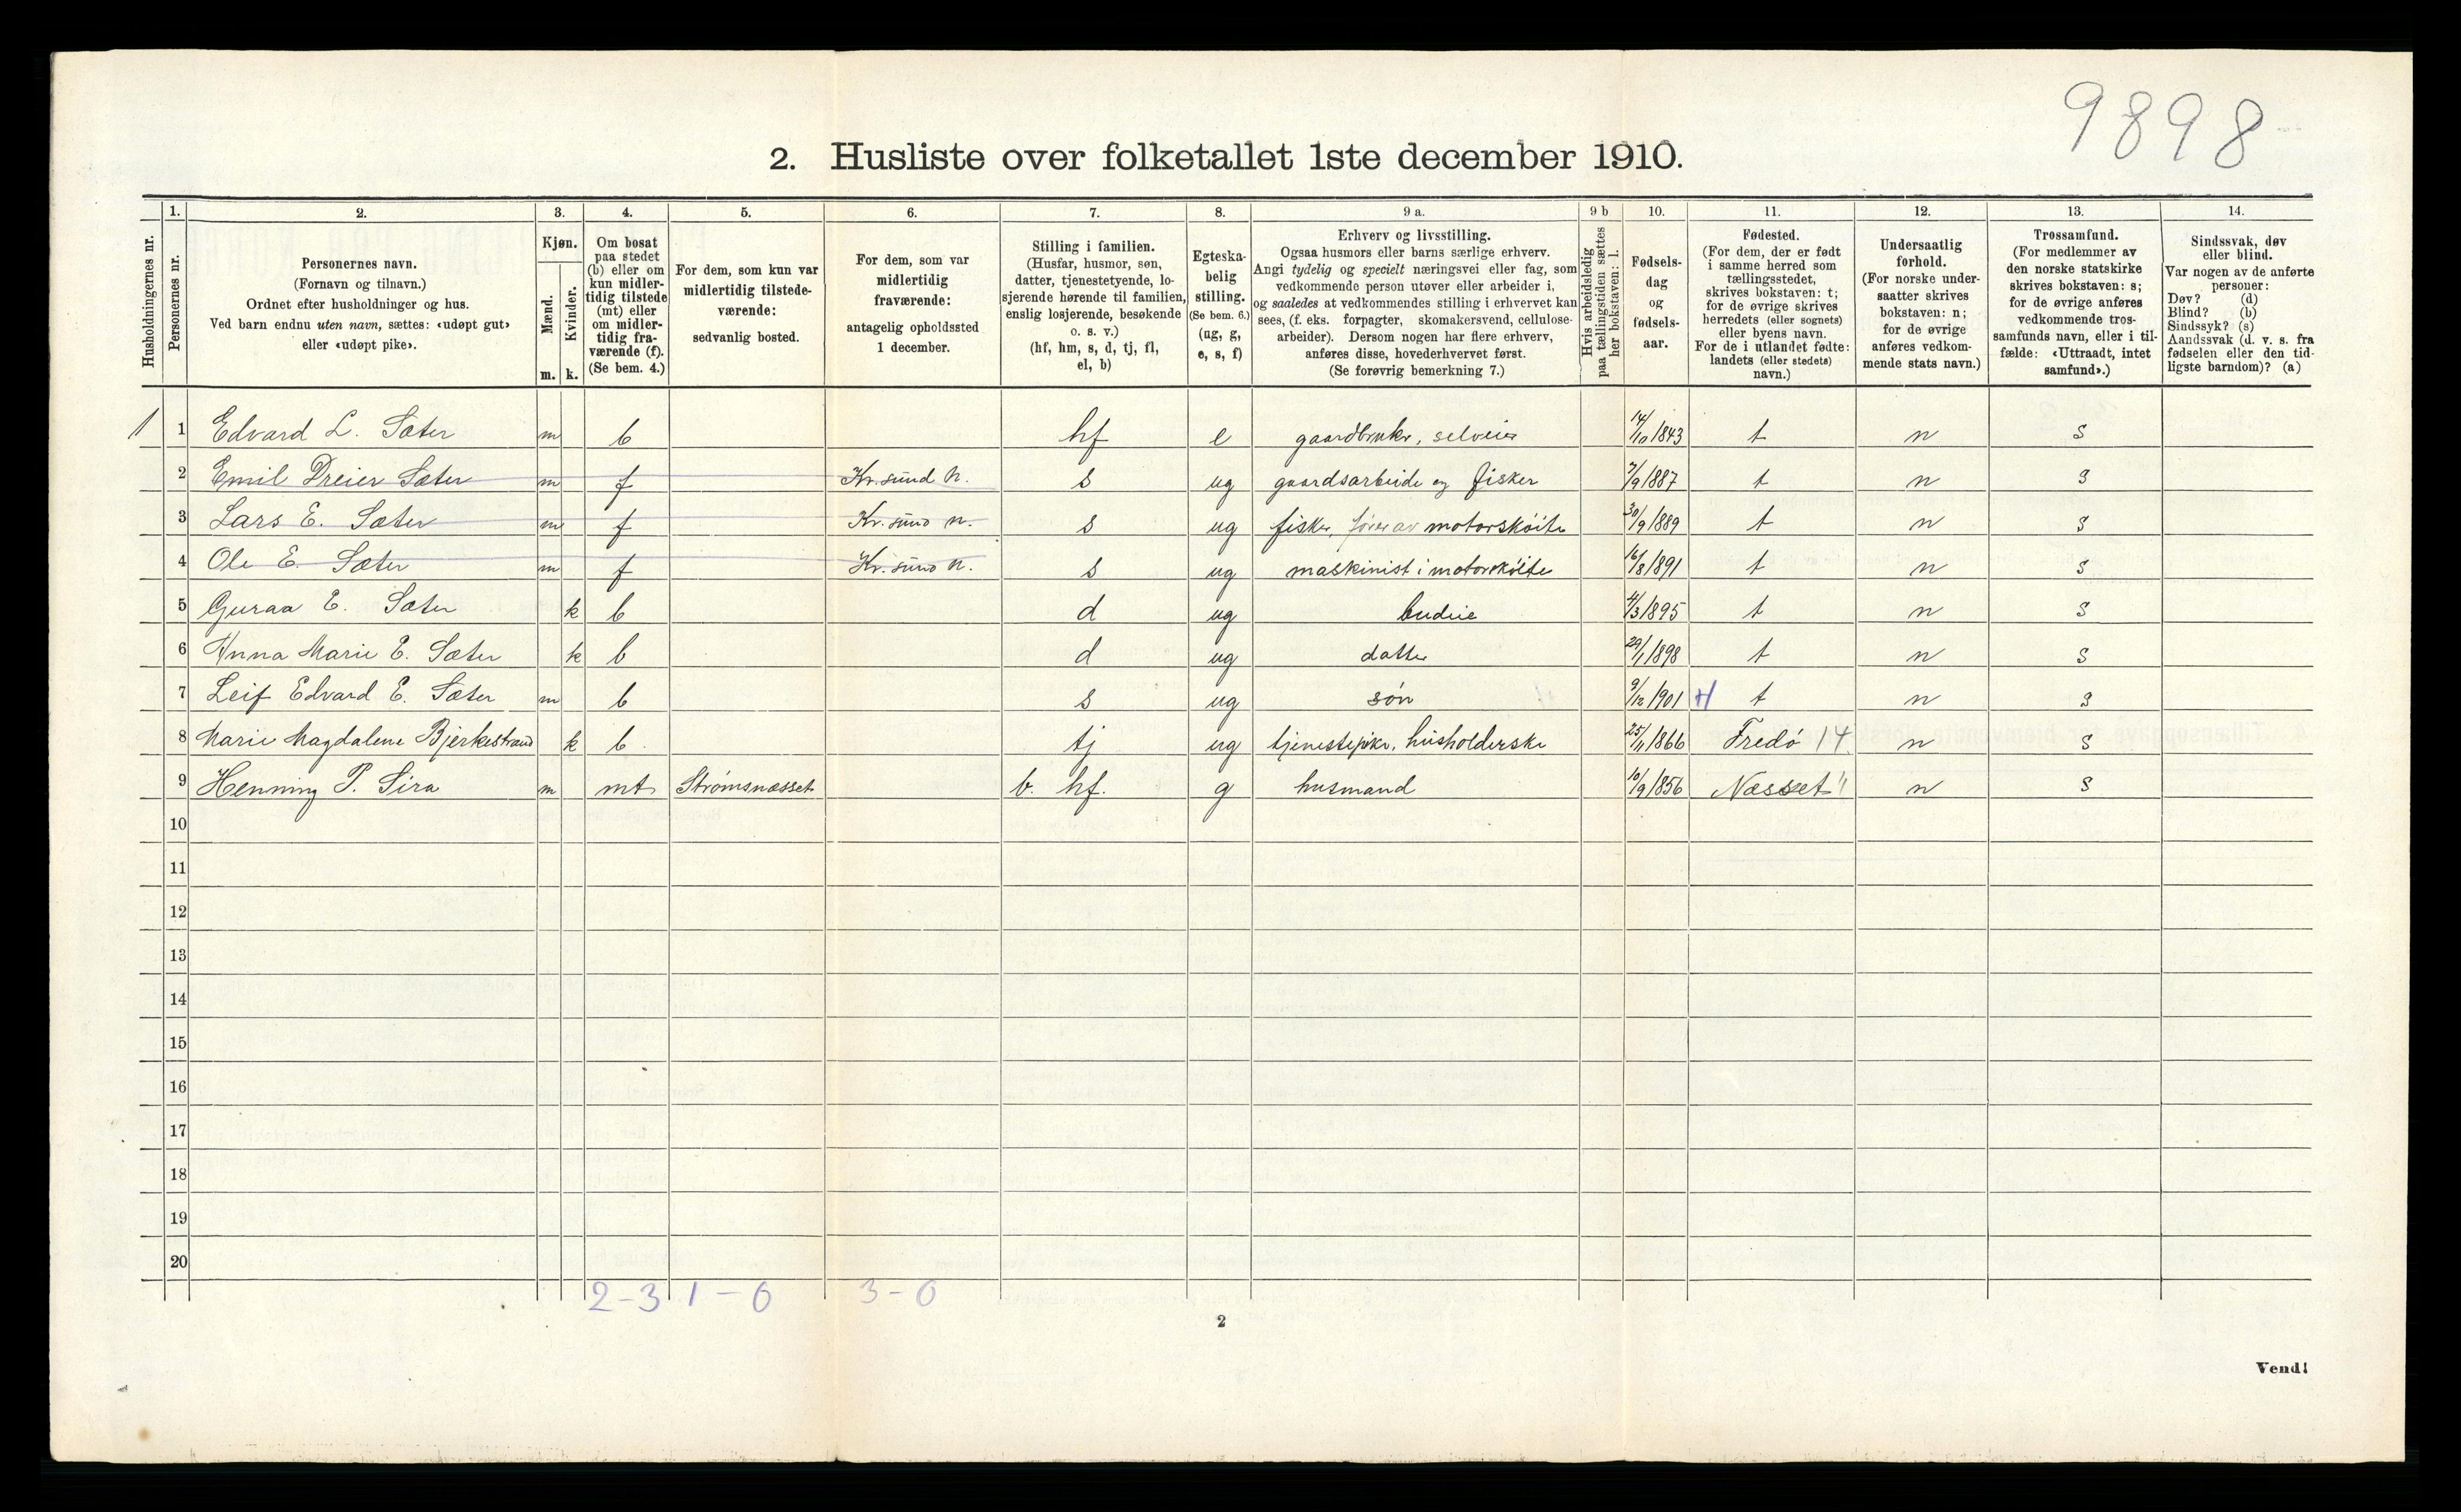 9898
2. Husliste over folketallet 1ste december 1910.
Husholdningernes nr.
1.
Personernes nr.
2.
Personernes navn.
(Fornavn og tilnavn.)
Ordnet efter husholdninger og hus.
Ved barn endnu uten navn, sættes: «udøpt gut»
eller «udøpt pike».
3.
Kjøn.
Mænd.
Kvinder.
m. k.
4.
Om bosat
paa stedet
(b) eller om
kun midler-
tidig tilstede
(mt) eller
om midler-
tidig fra-
værende (f).
(Se bem. 4.)
5.
For dem, som kun var
midlertidig tilstede-
værende:
sedvanlig bosted.
6.
For dem, som var
midlertidig
fraværende:
antagelig opholdssted
1 december.
7.
Stilling i familien.
(Husfar, husmor, søn,
datter, tjenestetyende, lo-
sjerende hørende til familien,
enslig losjerende, besøkende
o. s. v.)
(hf, hm, s, d, tj, fl,
el, b)
8.
Egteska-
belig
stilling.
(Se bem. 6.)
(ug, g,
e, s, f)
9 a.
Erhverv og livsstilling.
Ogsaa husmors eller barns særlige erhverv.
Angi tydelig og specielt næringsvei eller fag, som
vedkommende person utøver eller arbeider i,
og saaledes at vedkommendes stilling i erhvervet kan
sees, (f. eks. forpagter, skomakersvend, cellulose-
arbeider). Dersom nogen har flere erhverv,
anføres disse, hovederhvervet først.
(Se forøvrig bemerkning 7.)
9 b
Hvis arbeidsledig
paa tællingstiden sættes
her bokstaven: l.
10.
Fødsels-
dag
og
fødsels-
aar.
11.
Fødested.
(For dem, der er født
i samme herred som
tællingsstedet,
skrives bokstaven: t;
for de øvrige skrives
herredets (eller sognets)
eller byens navn.
For de i utlandet fødte:
landets (eller stedets)
navn.)
12.
Undersaatlig
forhold.
(For norske under-
saatter skrives
bokstaven: n;
for de øvrige
anføres vedkom-
mende stats navn.)
13.
Trossamfund.
(For medlemmer av
den norske statskirke
skrives bokstaven: s;
for de øvrige anføres
vedkommende tros-
samfunds navn, eller i til-
fælde: «Uttraadt, intet
samfund».)
14.
Sindssvak, døv
eller blind.
Var nogen av de anførte
personer:
Døv? (d)
Blind? (b)
Sindssyk? (s)
Aandssvak (d. v. s. fra
fødselen eller den tid-
ligste barndom)? (a)
1 1 Edvard L. Sæter m b hf e gaardbruker, selveier 14/10 1843 t n s
2 Emil Dreier Sæter m f Kr.sund N. s ug gaardsarbeide og fisker 7/9 1887 t n s
3 Lars E. Sæter m f Kr.sund N. s ug fisker, fører av motorskøite 30/9 1889 t n s
4 Ole E. Sæter m f Kr.sund N. s ug maskinist i motorskøite 16/8 1891 t n s
5 Guraa E. Sæter k b d ug budeie 4/3 1895 t n s
6 Anna Marie E. Sæter k b d ug datter 29/1 1898 t n s
7 Leif Edvard E. Sæter m b s ug søn 9/12 1901 t n s
8 Marie Magdalene Bjerkestrand k b tj ug tjenestepike, husholderske 25/11 1866 Fredø 14 n s
9 Henning P. Sira m mt Strømsnæsset b. hf. g husmand 10/9 1856 Næsset n s
10
11
12
13
14
15
16
17
18
19
20
2-3 1-0 3-0
2
Vend!